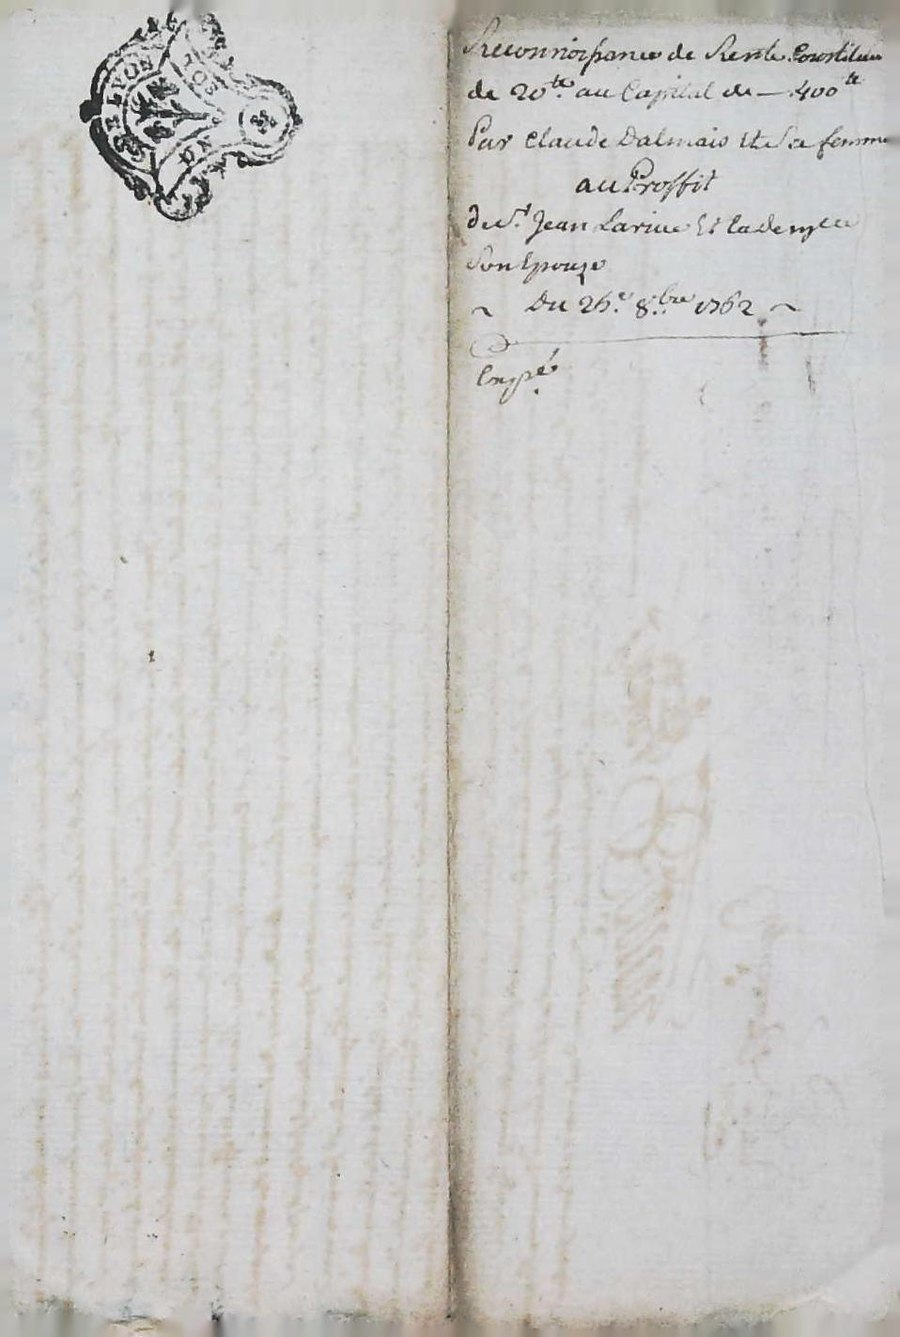 DE LYON
Reconnoissance de Rente Constituée
de 20.ᵗᵗ au Capital de — 400ᵗᵗ
Par Claude Dalmais Et Sa femme
au Proffit
du S.ʳ Jean Larive Et la dem.ˡˡᵉ
Son Epouze
~ Du 26.ᵉ 8.ᵇʳᵉ 1762 ~
Exp.ᵉ́